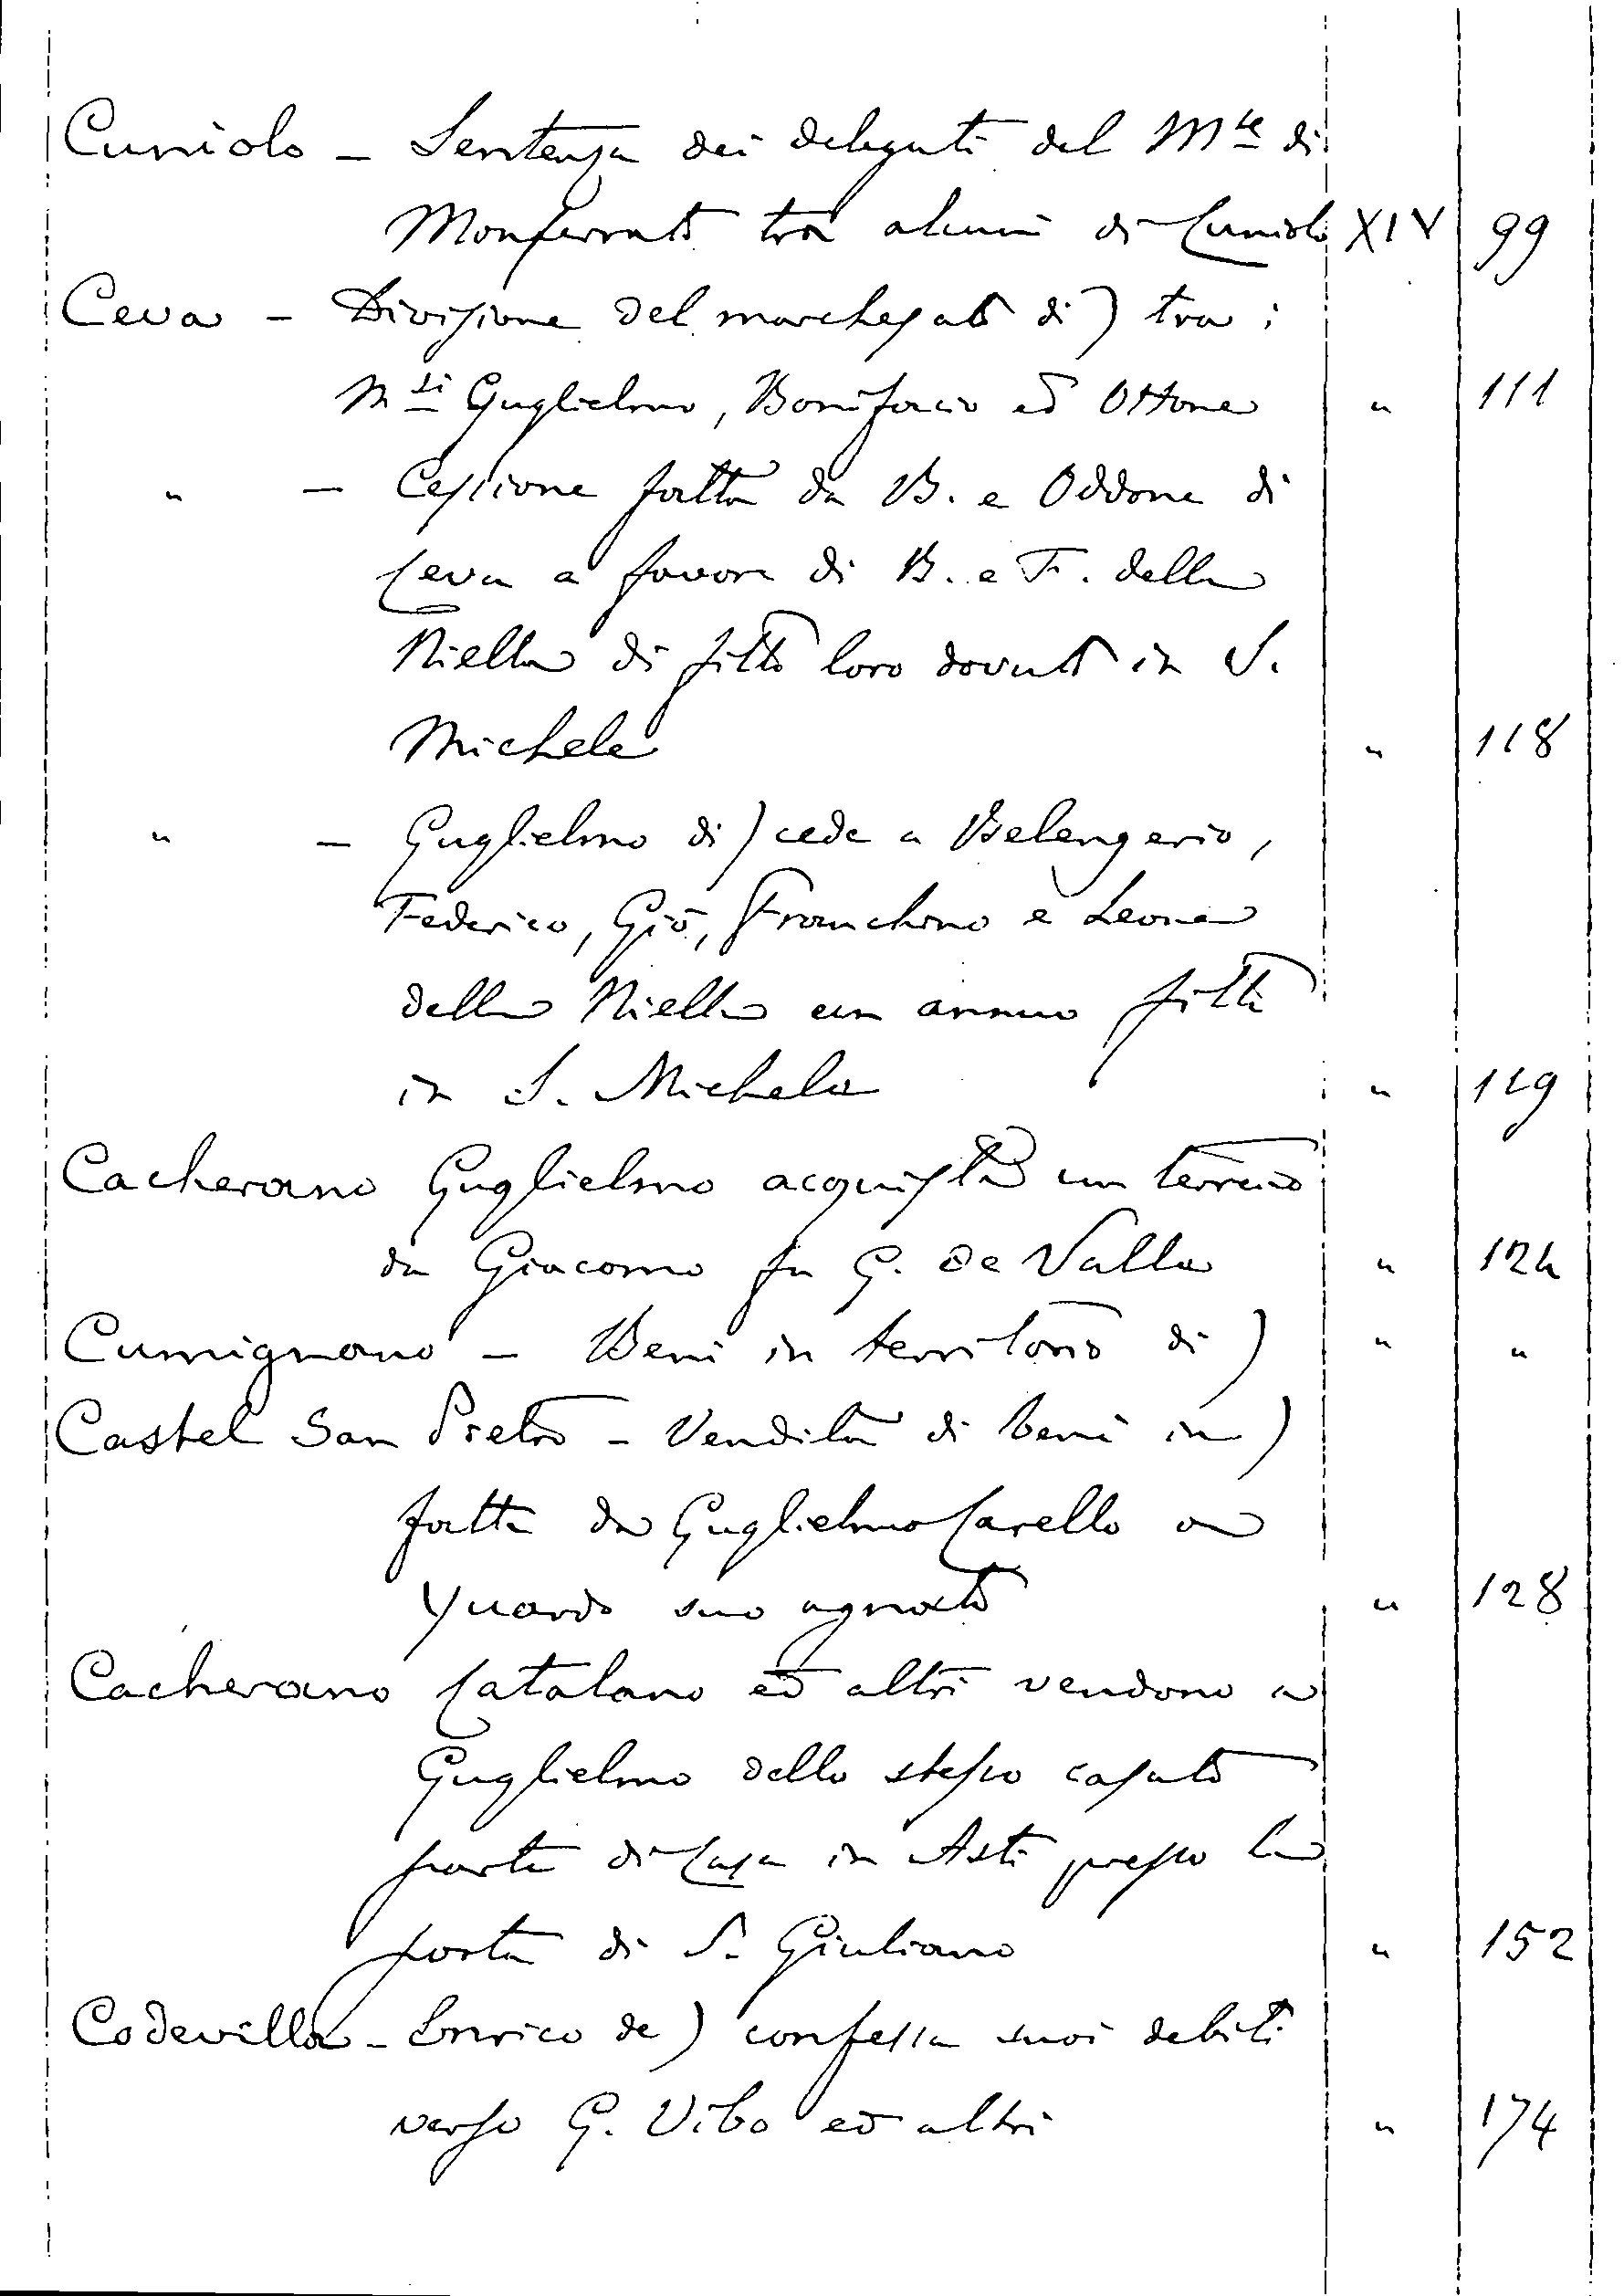 Cuniolo – Sentenza dei delegati del Mte di
Monferrato tra alcuni di Cuniolo XIV 99
Ceva – Divisione del marchesato di) tra i
Msi Guglielmo, Bonifacio ed Ottone " 111
" – Cessione fatta da B. e Oddone di
Ceva a favore di B. e F. della
Niella di fitto loro dovuto in S.
Michele " 118
" – Guglielmo di) cede a Belengerio,
Federico, Gio, Franchino e Leone
della Niella un annuo fitto
in S. Michele " 119
Cacherano Guglielmo acquista un terreno
da Giacomo fu G. de Valle " 124
Cumignano – Beni in territorio di) " "
Castel San Pietro – Vendita di beni in)
fatta da Guglielmo Carello a
Yuardo suo agnato " 128
Cacherano Catalano ed altri vendono a
Guglielmo dello stesso casato
parte di Casa in Asti presso la
porta di S. Giuliano " 152
Codevilla – Enrico de) confessa suoi debiti
verso G. Vibo ed altri " 174